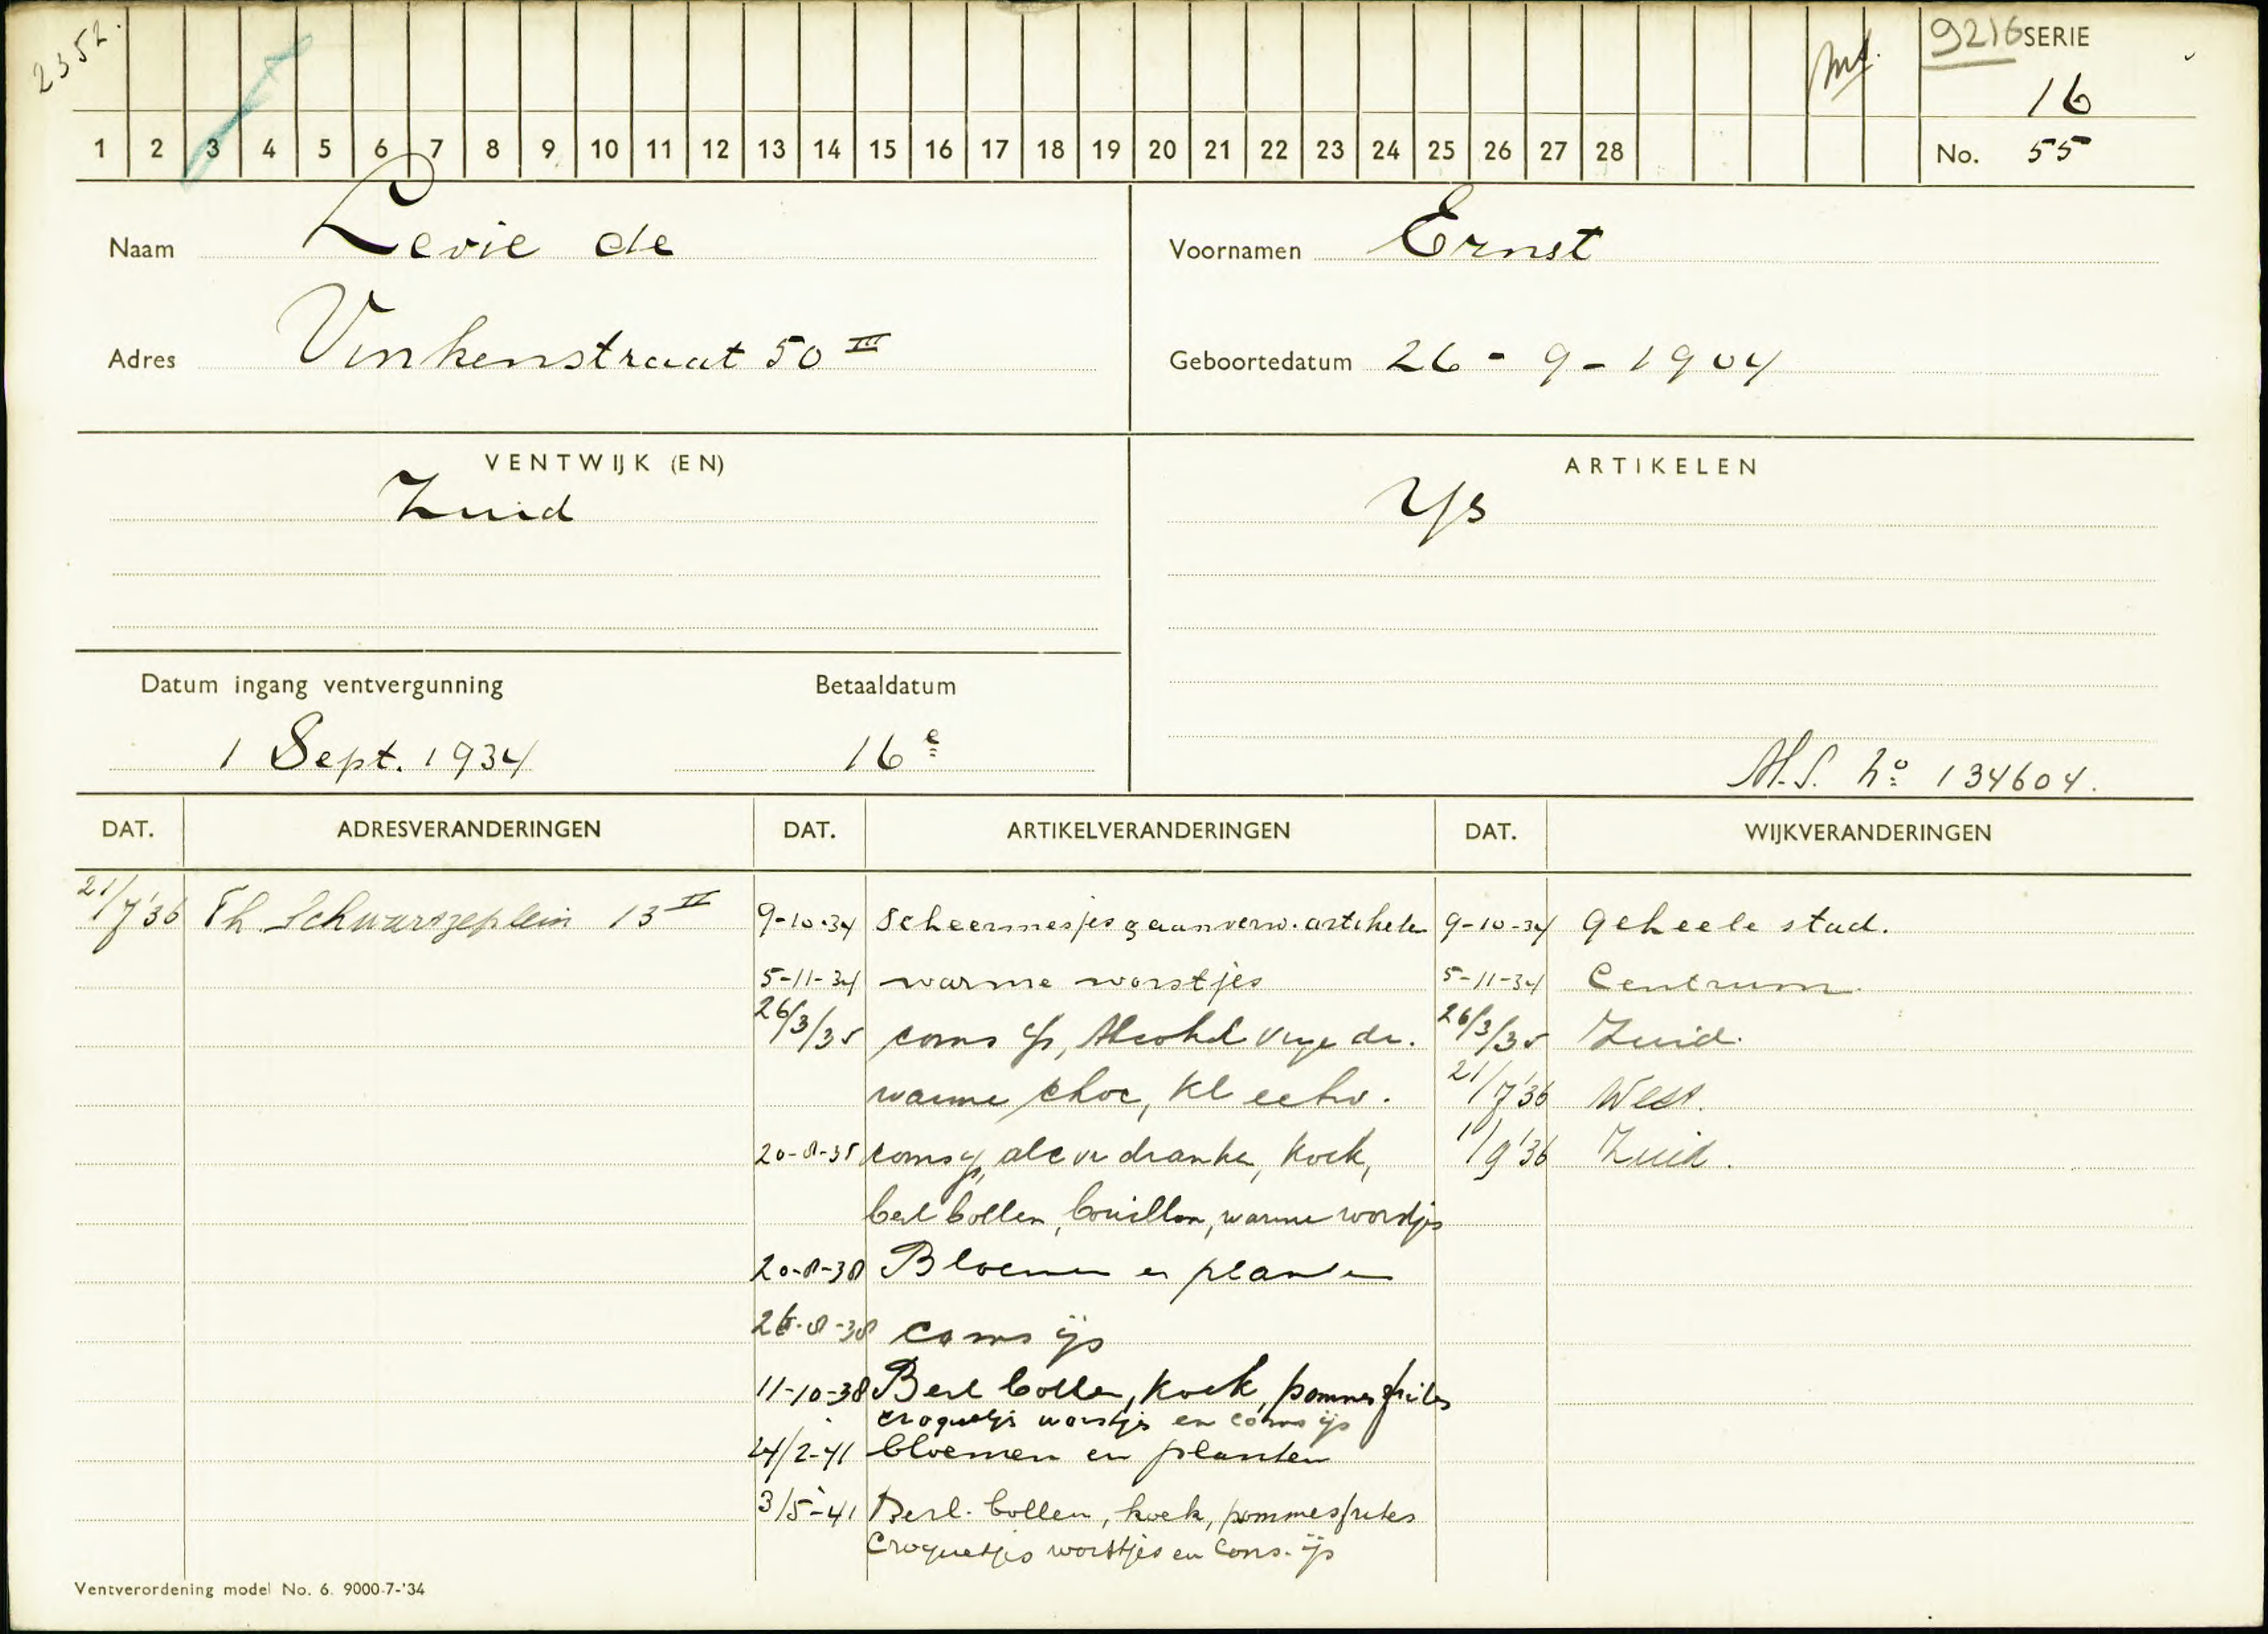 2352.
9216 SERIE
16
1 2 3 4 5 6 7 8 9 10 11 12 13 14 15 16 17 18 19 20 21 22 23 24 25 26 27 28
No. 55
Naam Levie de
Voornamen Ernst
Adres Vinkenstraat 50 III
Geboortedatum 26-9-1904
VENTWIJK (EN)
ARTIKELEN
Zuid
Ys
Datum ingang ventvergunning
Betaaldatum
1 Sept. 1934
16e
M.S. no 134604.
DAT. ADRESVERANDERINGEN DAT. ARTIKELVERANDERINGEN DAT. WIJKVERANDERINGEN
21/7'36 Th. Schwarszeplein 13 II 9-10-34 Scheermesjes & aanverw. artikelen 9-10-34 Geheele stad.
5-11-34 warme worstjes 5-11-34 Centrum
26/3/35 cons ijs, Alcohol vrije dr. 26/3/35 Zuid.
warme choc, kl eetw. 21/7'36 West.
20-8-35 cons ijs, alc vr dranken, koek, 1/9'36 Zuid.
berl bollen, bouillon, warme worstjes
20-8-38 Bloemen en planten
26-8-38 cons ijs
11-10-38 Berl bollen, koek, pommes frites
croquetjes worstjes en cons ijs
24/2-41 bloemen en planten
3/5-41 Berl. bollen, koek, pommesfrites
Croquetjes worstjes en Cons. ijs
Ventverordening model No. 6. 9000-7-'34